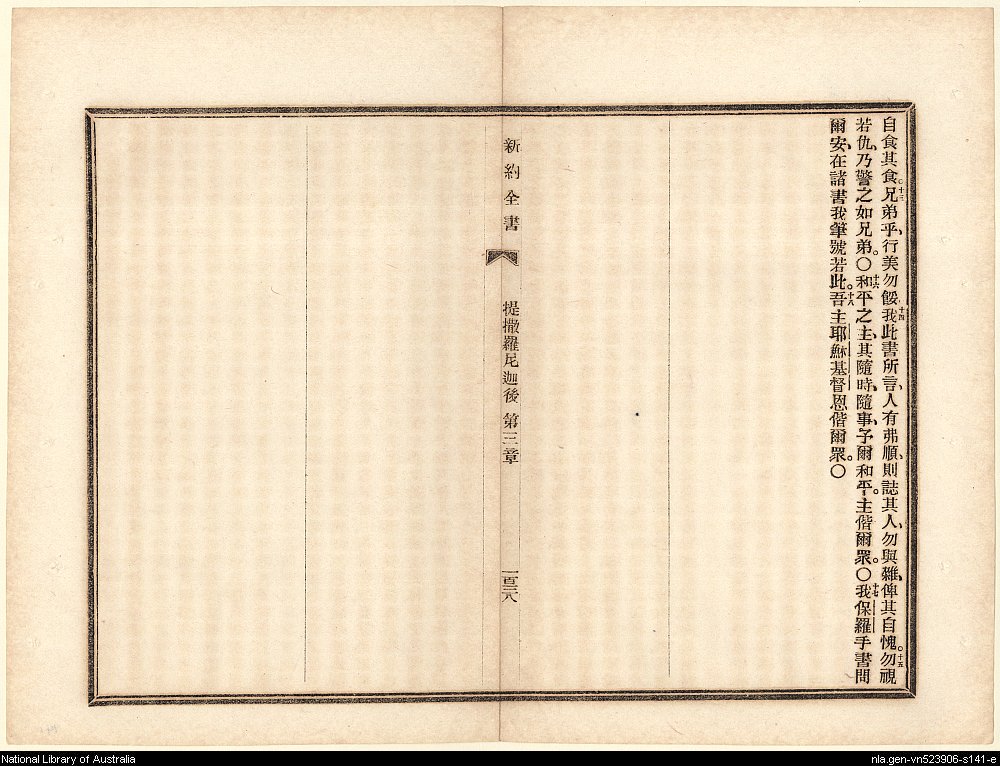 自食其食。十三兄弟乎、行美勿餒、十四我此書所言、人有弗順、則誌其人、勿與雜、俾其自愧。十五勿視
若仇、乃警之如兄弟。〇十六和平之主、其隨時、隨事、予爾和平。主偕爾眾。〇十七我保羅手書問
爾安、在諸書我筆號若此。十八吾主耶穌基督恩偕爾眾。〇
新約全書
提撒羅尼迦後 第三章
一百三八
National Library of Australia
nla.gen-vn523906-s141-e